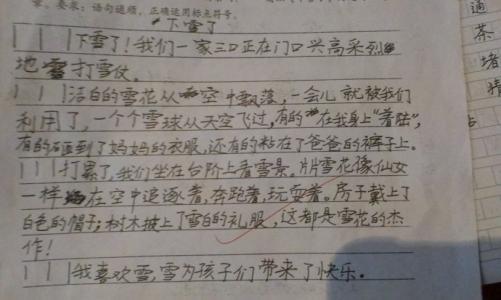 字。要求：语句通顺，正确运用标点符号。
下雪了
下雪了！我们一家三口正在门口兴高采烈
地打雪仗。
洁白的雪花从空中飘落，一会儿就被我们
利用了，一个个雪球从天空飞过，有的在我身上"着陆"，
有的砸到了妈妈的衣服，还有的粘在了爸爸的裤子上。
打累了，我们坐在台阶上看雪景。片片雪花像仙女
一样在空中追逐着，奔跑着，玩耍着。房子戴上了
白色的帽子；树木披上了雪白的礼服，这都是雪花的杰
作！
我喜欢雪，雪为孩子们带来了快乐。
通
茶
堵